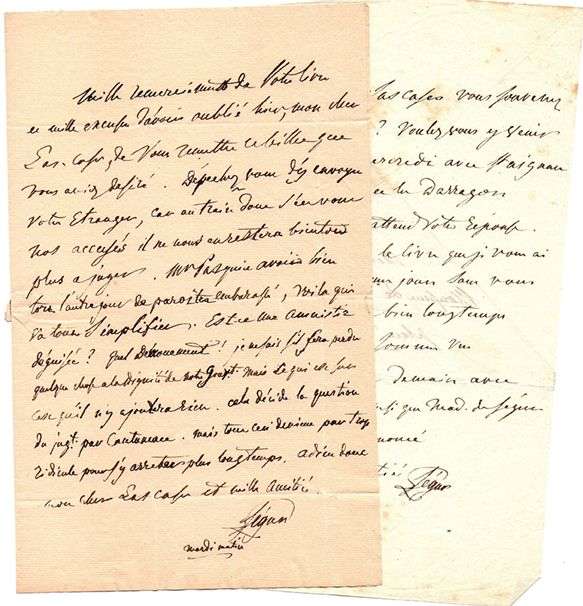 Mille remerciments de Votre livre
et mille excuses d'avoir oublié hier, mon cher
Las-Cases, de Vous remettre ce billet que
vous aviez désiré. Dépechez vous d'y envoyer
Votre Etranger, car au train dont s'évadent
nos accusés il ne nous en restera bientôt
plus a juger. Mr Pasquier avoit bien
tort l'autre jour de paroitre embarassé, voila qui
va tout Simplifier. Est ce une amnistie
déguisée? quel Dénouement! je ne sais s'il fera perdre
quelque chose a la dignité de notre Gouvt mais ce qui est sur
c'est qu'il n'y ajoutera rien. cela décide la question
du jugt par Contumace. mais tout ceci devient par trop
ridicule pour s'y arreter plus longtemps. adieu donc
mon cher Las Cases et mille amitiés.
Ségur
mardi matin
Las cases vous souvenez
? Voulez vous y venir
mercredi avec
Darragon
attend Votre Réponse.
le livre que je vous ai
jours sans vous
bien longtemps
sommes vu
Demain avec
si que Mad. de Ségur
Ségur